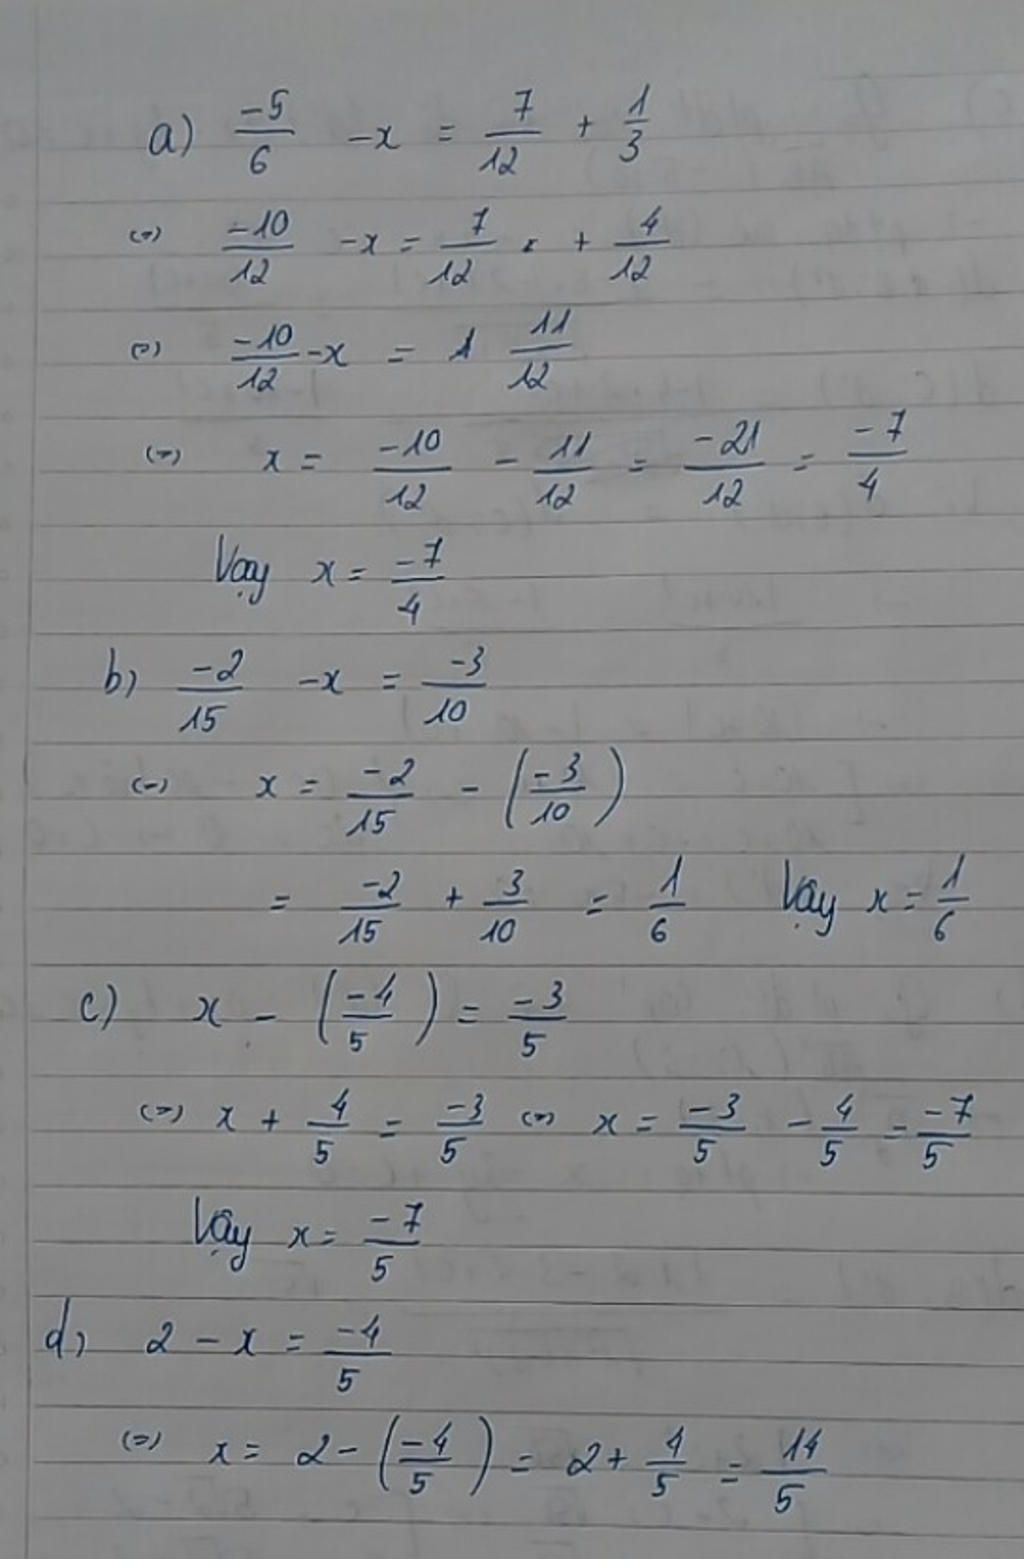 a) -5/6 - x = 7/12 + 1/3
(=) -10/12 - x = 7/12 + 4/12
(=) -10/12 - x = 11/12
(=) x = -10/12 - 11/12 = -21/12 = -7/4
Vạy x = -7/4
b) -2/15 - x = -3/10
(=) x = -2/15 - (-3/10)
= -2/15 + 3/10 = 1/6 Vậy x = 1/6
c) x - (-4/5) = -3/5
(=) x + 4/5 = -3/5 (=) x = -3/5 - 4/5 = -7/5
Vậy x = -7/5
d) 2 - x = -4/5
(=) x = 2 - (-4/5) = 2 + 4/5 = 14/5